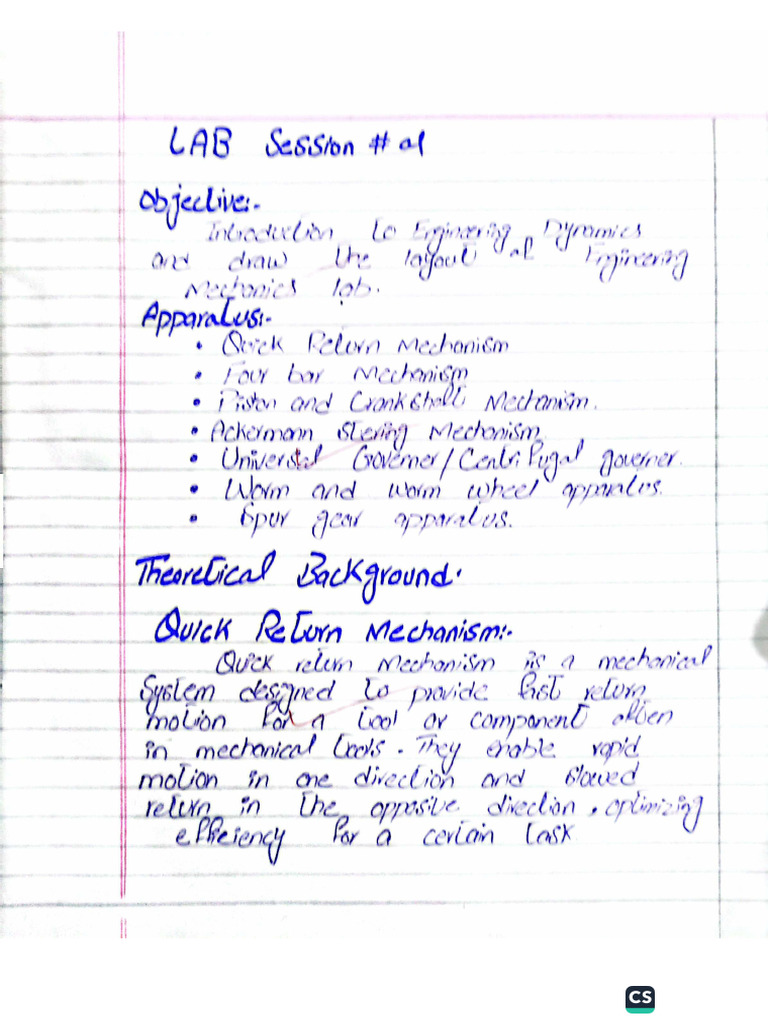 LAB Session # 01
Objective:-
Introduction to Engineering Dynamics
and draw the layout of Engineering
Mechanics lab.
Apparatus:-
• Quick Return Mechanism
• Four bar Mechanism
• Piston and Crankshaft Mechanism.
• Ackermann stering Mechanism
• Universal Governer/Centrifugal governer.
• Worm and worm wheel apparatus.
• Spur gear apparatus.
Theoretical Background:
Quick Return Mechanism:-
Quick return Mechanism is a mechanical
System designed to provide fast return
motion for a tool or component often
in mechanical tools. They enable rapid
motion in one direction and slowed
return in the opposive direction, optimizing
efficiency for a certain task
CS